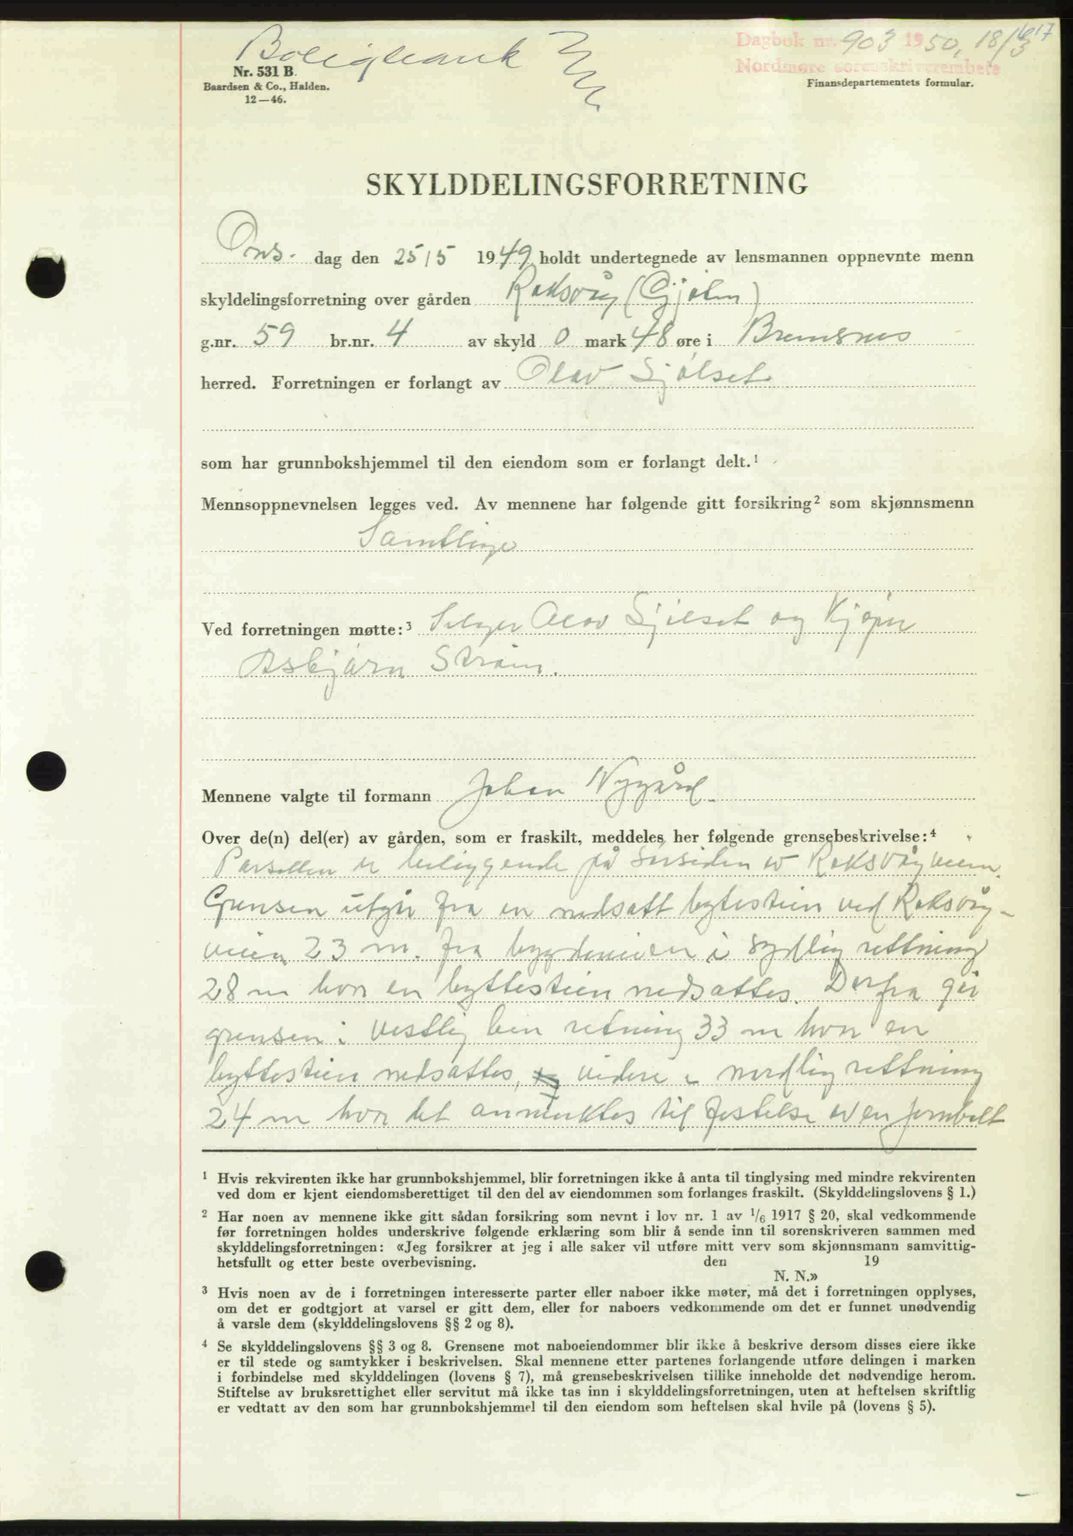 Boligbank
Dagbok nr. 903 1950, 18/3
617
Nordmøre sorenskriverembete
Nr. 531 B.
Baardsen & Co., Halden.
12—46.
Finansdepartementets formular.
SKYLDDELINGSFORRETNING
Ons. dag den 25/5 1949 holdt undertegnede av lensmannen oppnevnte menn
skyldelingsforretning over gården Roksvåg (Gjølm)
g.nr. 59 br.nr. 4 av skyld 0 mark 48 øre i Bremsnes
herred. Forretningen er forlangt av Olav Sjølset
som har grunnbokshjemmel til den eiendom som er forlangt delt.¹
Mennsoppnevnelsen legges ved. Av mennene har følgende gitt forsikring² som skjønnsmenn
Samtlige
Ved forretningen møtte:³ Selger Olav Sjølset og Kjøper
Asbjørn Strøm.
Mennene valgte til formann Johan Nygård.
Over de(n) del(er) av gården, som er fraskilt, meddeles her følgende grensebeskrivelse:⁴
Parsellen er beliggende på sørsiden av Roksvågveien.
Grensen utgår fra en nedsatt bytestein ved Roksvåg-
veien 23 m. fra bygdeveien i sydlig rettning
28 m hvor en byttestein nedsattes. Derfra går
grensen i vestlig bein retning 33 m hvor en
byttestein nedsattes, videre i nordlig rettning
24 m hvor det anmerktes til festelse av en jernbolt
¹ Hvis rekvirenten ikke har grunnbokshjemmel, blir forretningen ikke å anta til tinglysing med mindre rekvirenten
ved dom er kjent eiendomsberettiget til den del av eiendommen som forlanges fraskilt. (Skylddelingslovens § 1.)
² Har noen av mennene ikke gitt sådan forsikring som nevnt i lov nr. 1 av ¹/₆ 1917 § 20, skal vedkommende
før forretningen holdes underskrive følgende erklæring som blir å sende inn til sorenskriveren sammen med
skylddelingsforretningen: «Jeg forsikrer at jeg i alle saker vil utføre mitt verv som skjønnsmann samvittig-
hetsfullt og etter beste overbevisning. den 19
N. N.»
³ Hvis noen av de i forretningen interesserte parter eller naboer ikke møter, må det i forretningen opplyses,
om det er godtgjort at varsel er gitt dem, eller for naboers vedkommende om det er funnet unødvendig
å varsle dem (skylddelingslovens §§ 2 og 8).
⁴ Se skylddelingslovens §§ 3 og 8. Grensene mot naboeiendommer blir ikke å beskrive dersom disses eiere ikke
er til stede og samtykker i beskrivelsen. Skal mennene etter partenes forlangende utføre delingen i marken
i forbindelse med skylddelingen (lovens § 7), må grensebeskrivelsen tillike inneholde det nødvendige herom.
Stiftelse av bruksrettighet eller servitut må ikke tas inn i skylddelingsforretningen, uten at heftelsen skriftlig
er vedtatt av den som har grunnbokshjemmel til den eiendom som heftelsen skal hvile på (lovens § 5).